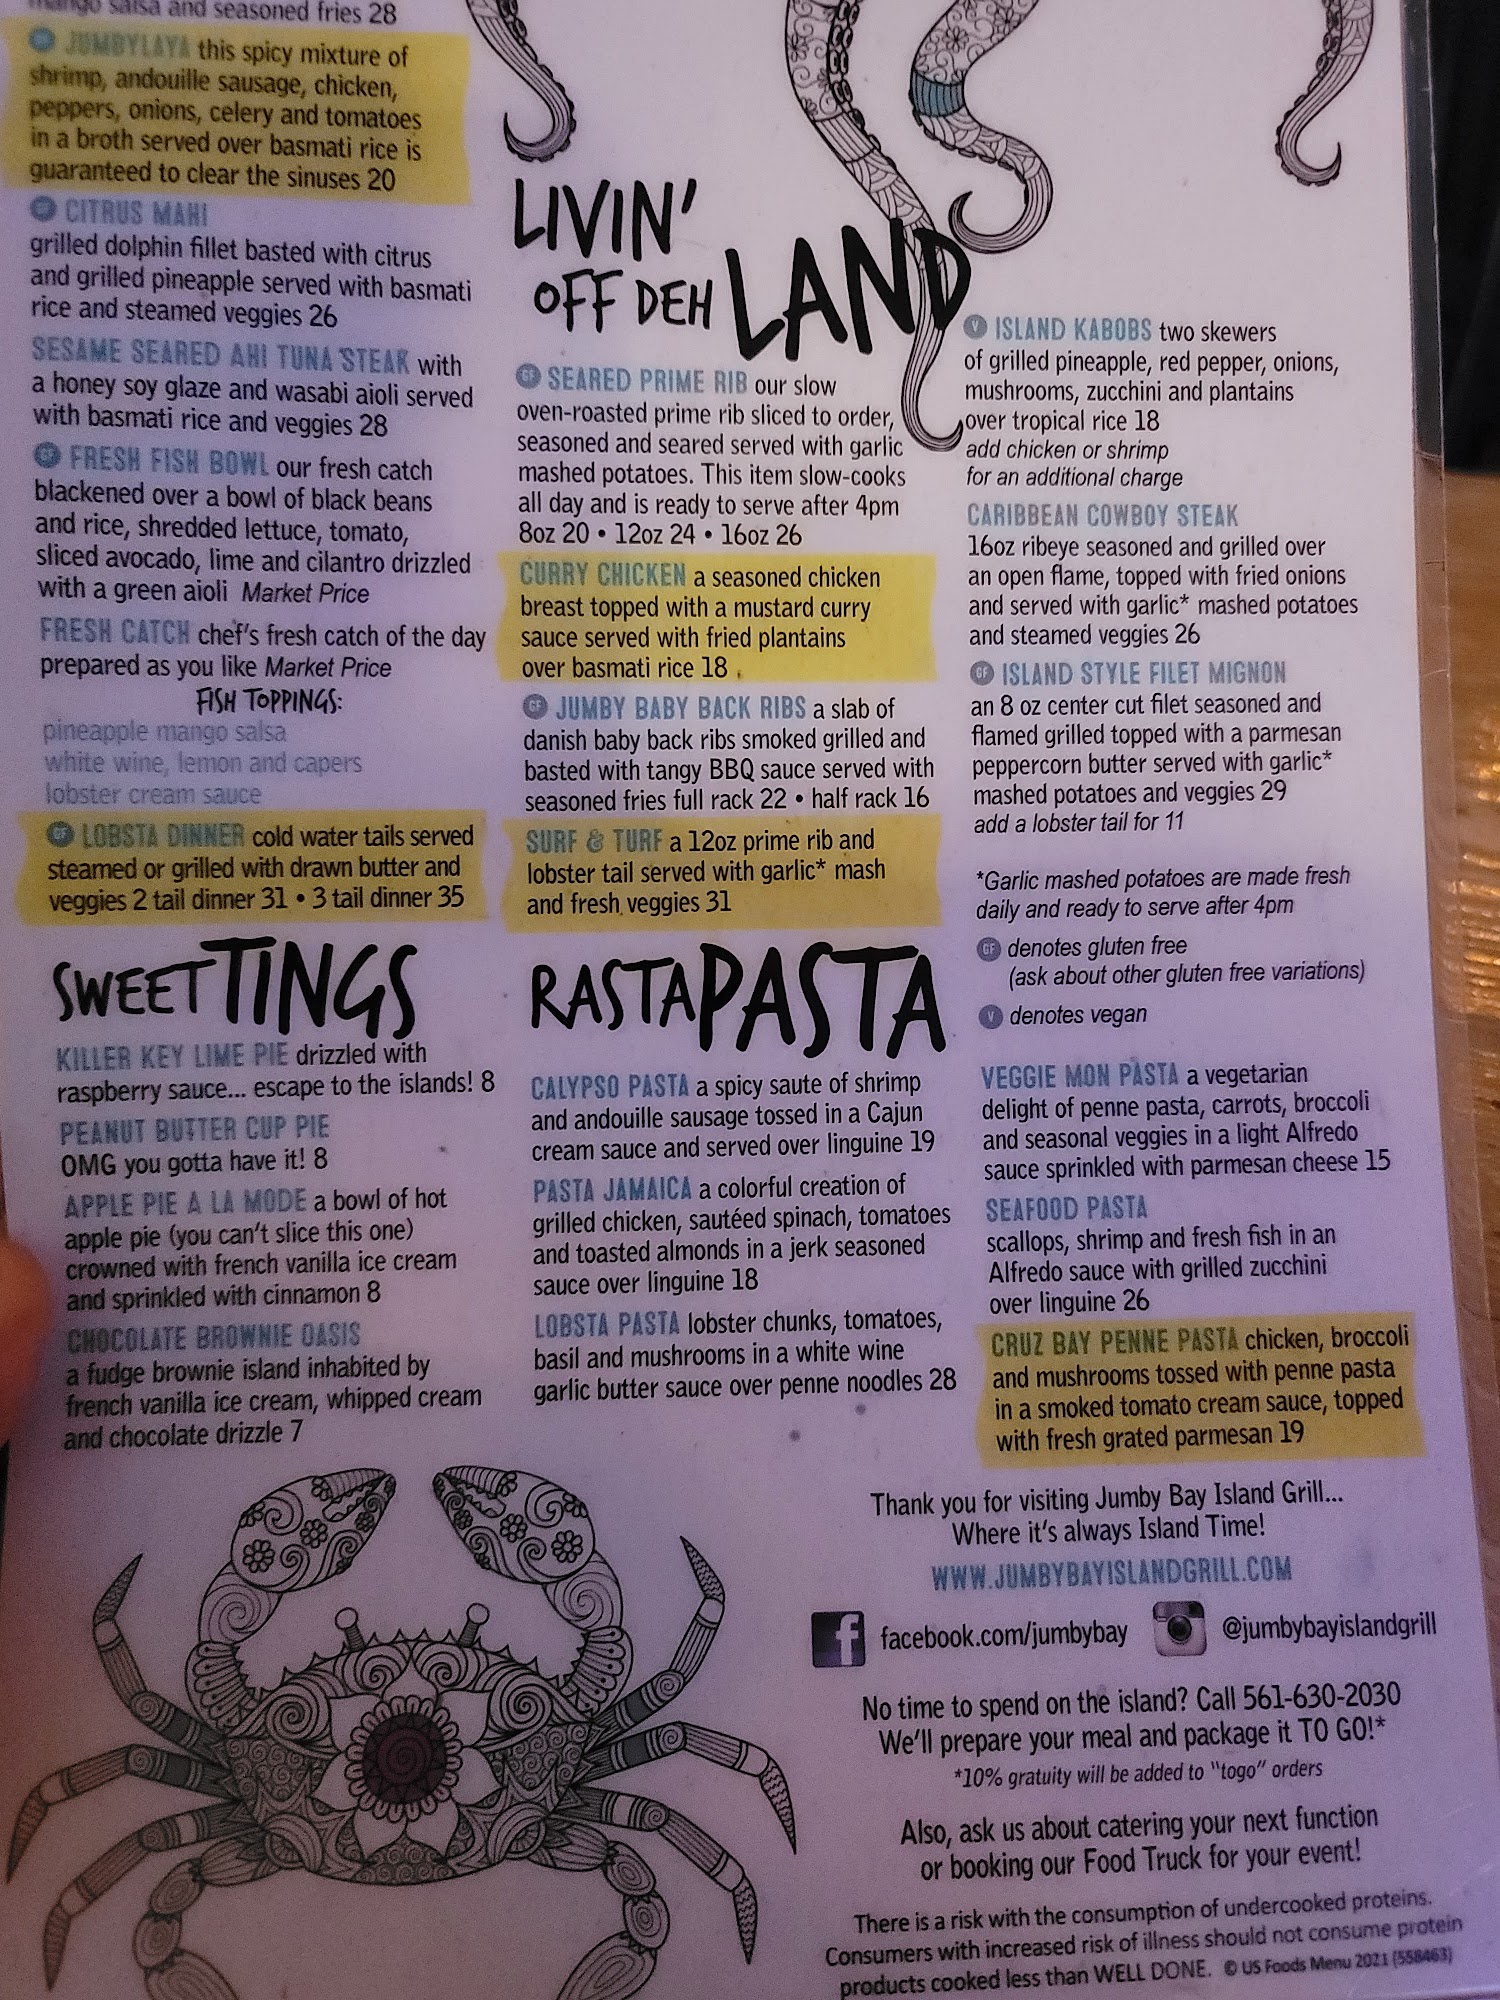 mango salsa and seasoned fries 28
GF JUMBYLAYA this spicy mixture of
shrimp, andouille sausage, chicken,
peppers, onions, celery and tomatoes
in a broth served over basmati rice is
guaranteed to clear the sinuses 20
GF CITRUS MAHI
grilled dolphin fillet basted with citrus
and grilled pineapple served with basmati
rice and steamed veggies 26
SESAME SEARED AHI TUNA STEAK with
a honey soy glaze and wasabi aioli served
with basmati rice and veggies 28
GF FRESH FISH BOWL our fresh catch
blackened over a bowl of black beans
and rice, shredded lettuce, tomato,
sliced avocado, lime and cilantro drizzled
with a green aioli Market Price
FRESH CATCH chef's fresh catch of the day
prepared as you like Market Price
FISH TOPPINGS:
pineapple mango salsa
white wine, lemon and capers
lobster cream sauce
GF LOBSTA DINNER cold water tails served
steamed or grilled with drawn butter and
veggies 2 tail dinner 31 • 3 tail dinner 35
SWEET TINGS
KILLER KEY LIME PIE drizzled with
raspberry sauce... escape to the islands! 8
PEANUT BUTTER CUP PIE
OMG you gotta have it! 8
APPLE PIE A LA MODE a bowl of hot
apple pie (you can't slice this one)
crowned with french vanilla ice cream
and sprinkled with cinnamon 8
CHOCOLATE BROWNIE OASIS
a fudge brownie island inhabited by
french vanilla ice cream, whipped cream
and chocolate drizzle 7
LIVIN'
OFF DEH LAND
GF SEARED PRIME RIB our slow
oven-roasted prime rib sliced to order,
seasoned and seared served with garlic
mashed potatoes. This item slow-cooks
all day and is ready to serve after 4pm
8oz 20 • 12oz 24 • 16oz 26
CURRY CHICKEN a seasoned chicken
breast topped with a mustard curry
sauce served with fried plantains
over basmati rice 18
GF JUMBY BABY BACK RIBS a slab of
danish baby back ribs smoked grilled and
basted with tangy BBQ sauce served with
seasoned fries full rack 22 • half rack 16
SURF & TURF a 12oz prime rib and
lobster tail served with garlic* mash
and fresh veggies 31
V ISLAND KABOBS two skewers
of grilled pineapple, red pepper, onions,
mushrooms, zucchini and plantains
over tropical rice 18
add chicken or shrimp
for an additional charge
CARIBBEAN COWBOY STEAK
16oz ribeye seasoned and grilled over
an open flame, topped with fried onions
and served with garlic* mashed potatoes
and steamed veggies 26
GF ISLAND STYLE FILET MIGNON
an 8 oz center cut filet seasoned and
flamed grilled topped with a parmesan
peppercorn butter served with garlic*
mashed potatoes and veggies 29
add a lobster tail for 11
*Garlic mashed potatoes are made fresh
daily and ready to serve after 4pm
GF denotes gluten free
(ask about other gluten free variations)
V denotes vegan
RASTA PASTA
CALYPSO PASTA a spicy saute of shrimp
and andouille sausage tossed in a Cajun
cream sauce and served over linguine 19
PASTA JAMAICA a colorful creation of
grilled chicken, sautéed spinach, tomatoes
and toasted almonds in a jerk seasoned
sauce over linguine 18
LOBSTA PASTA lobster chunks, tomatoes,
basil and mushrooms in a white wine
garlic butter sauce over penne noodles 28
VEGGIE MON PASTA a vegetarian
delight of penne pasta, carrots, broccoli
and seasonal veggies in a light Alfredo
sauce sprinkled with parmesan cheese 15
SEAFOOD PASTA
scallops, shrimp and fresh fish in an
Alfredo sauce with grilled zucchini
over linguine 26
CRUZ BAY PENNE PASTA chicken, broccoli
and mushrooms tossed with penne pasta
in a smoked tomato cream sauce, topped
with fresh grated parmesan 19
Thank you for visiting Jumby Bay Island Grill...
Where it's always Island Time!
WWW.JUMBYBAYISLANDGRILL.COM
f facebook.com/jumbybay @jumbybayislandgrill
No time to spend on the island? Call 561-630-2030
We'll prepare your meal and package it TO GO!*
*10% gratuity will be added to "togo" orders
Also, ask us about catering your next function
or booking our Food Truck for your event!
There is a risk with the consumption of undercooked proteins.
Consumers with increased risk of illness should not consume protein
products cooked less than WELL DONE. © US Foods Menu 2021 (558463)